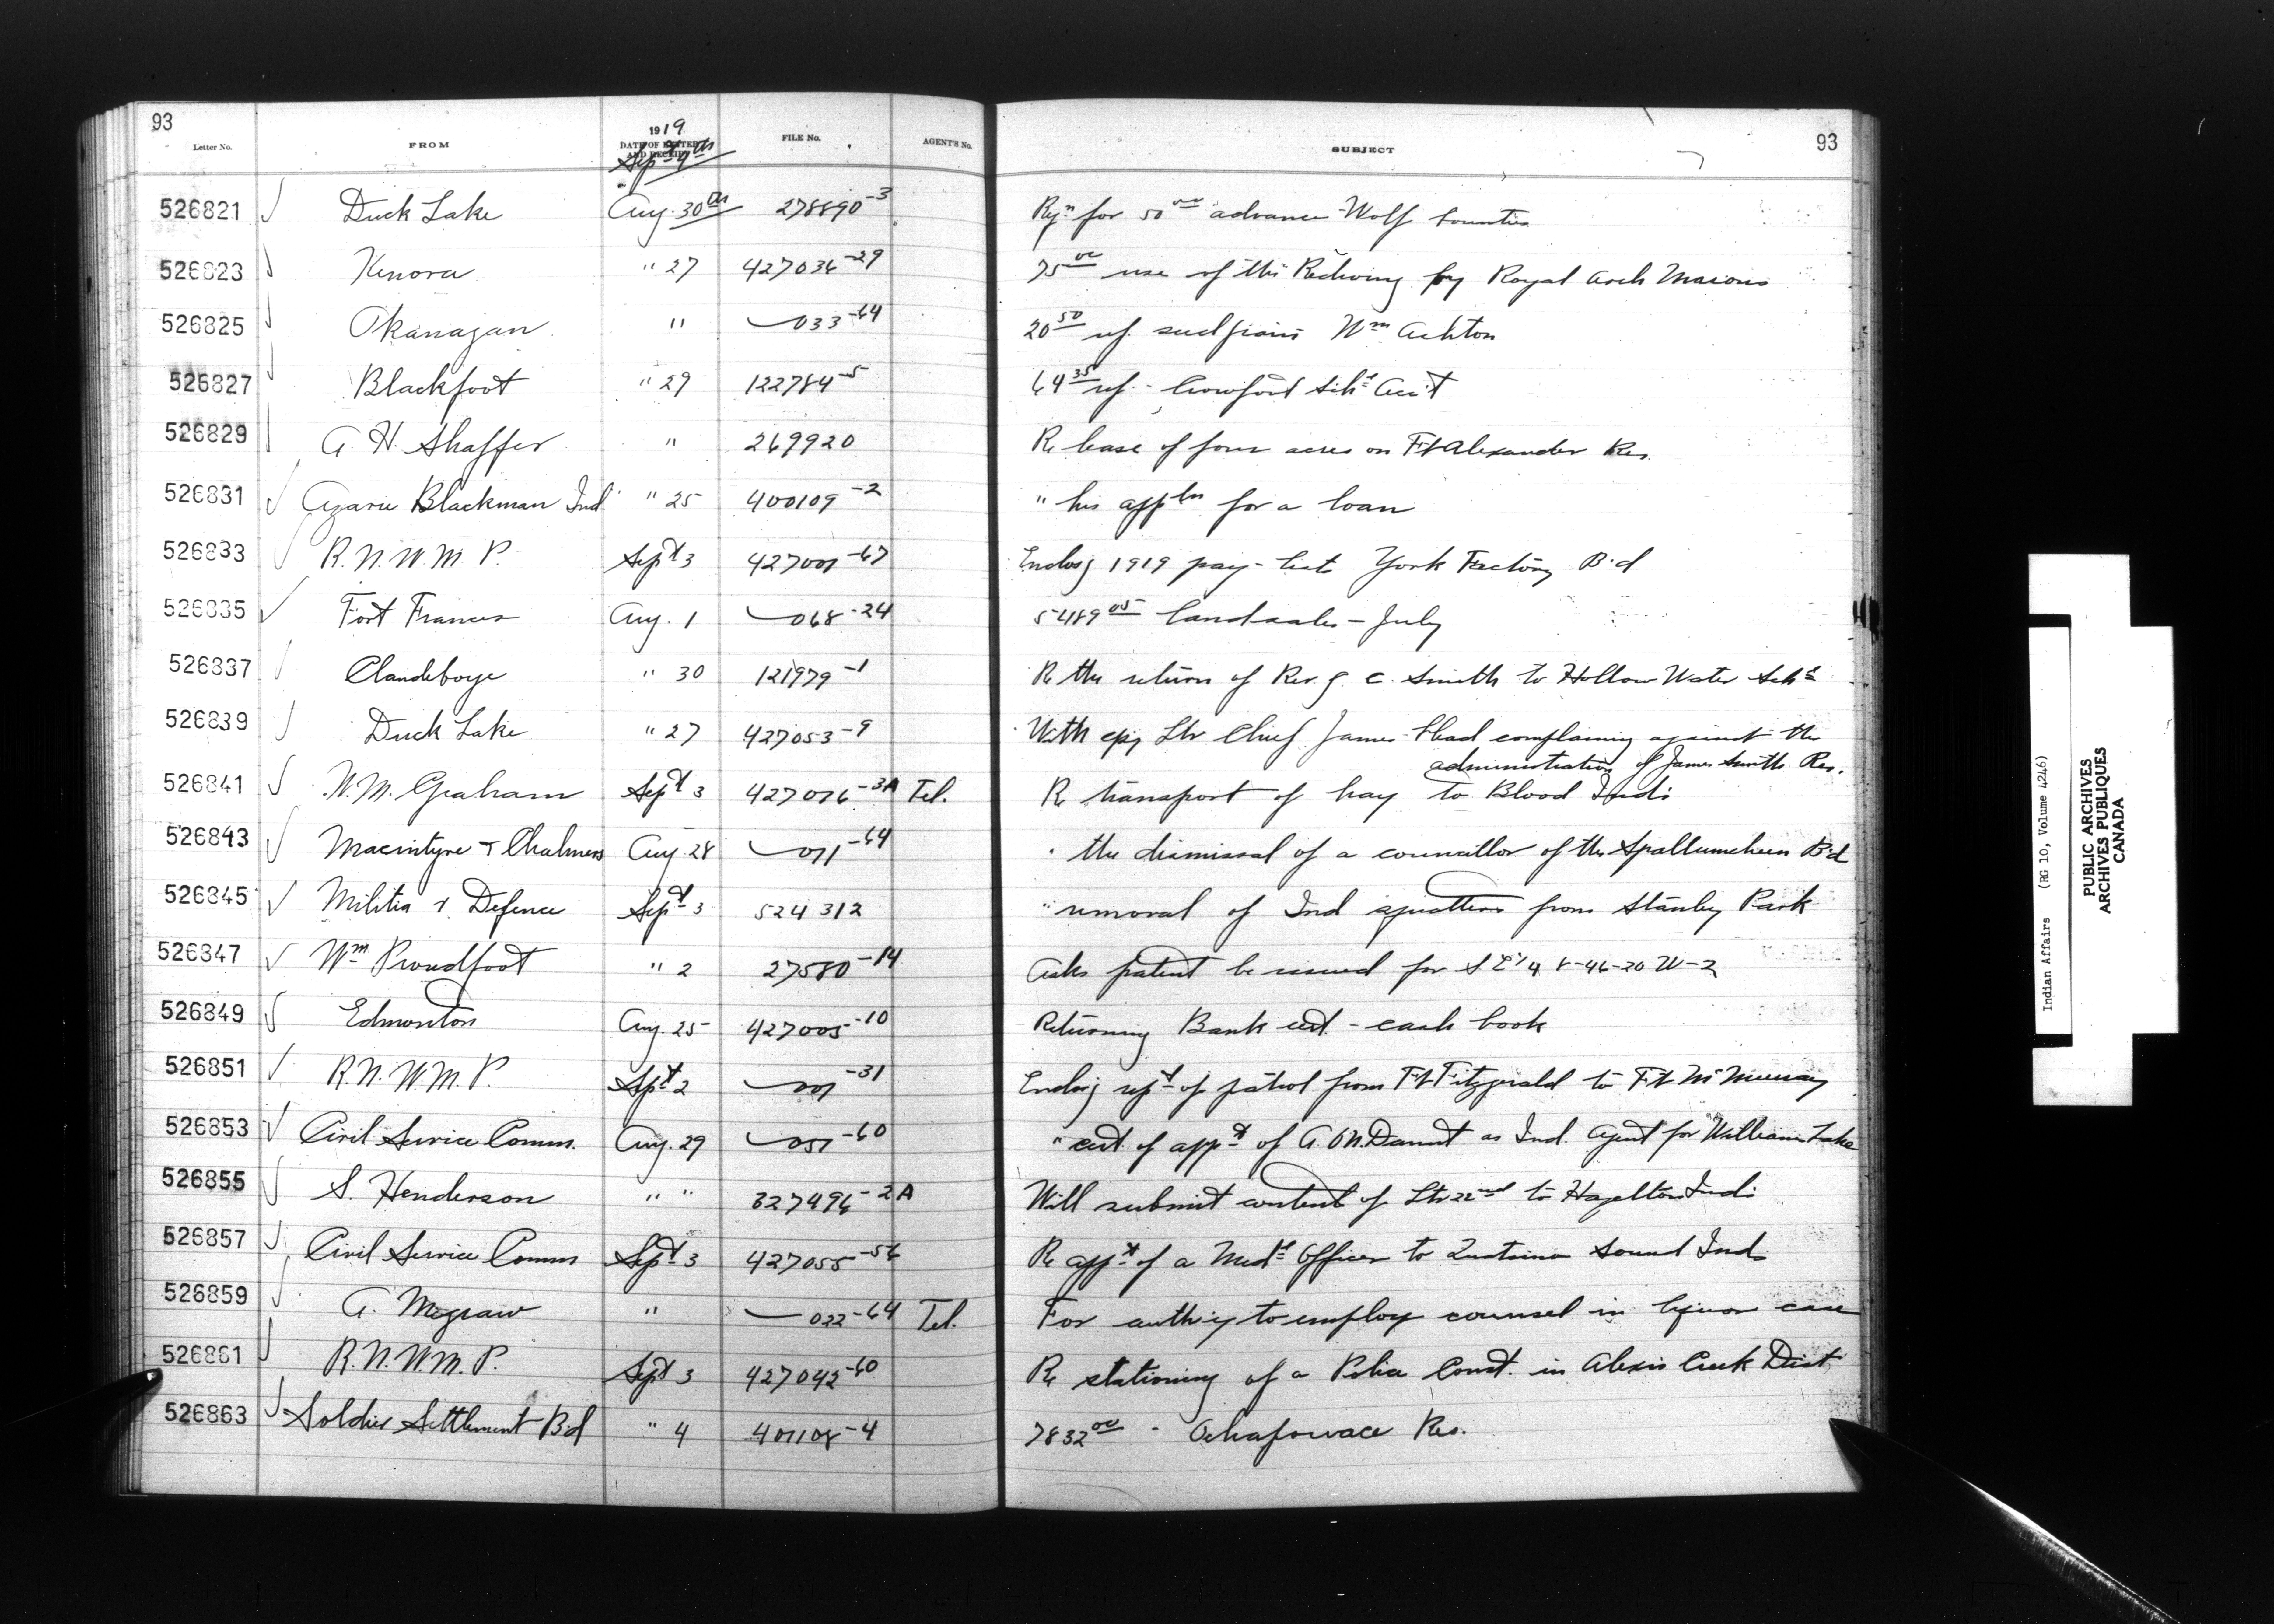 93
Letter No. FROM 1919 DATE OF LETTER AND RECEIPT FILE No. AGENT'S No. SUBJECT 93
Sept
526821 Duck Lake Aug. 30th 278890-3 Rqn for 50 00 advance - Wolf bounties
526823 Kenora " 27 427036-29 75 00 use of the Redwing by Royal Arch Masons
526825 Okanagan " 033-64 20 50 Wm Ashton
526827 Blackfoot " 29 122784-5 64 35 ref. - Crowfoot Schl Acct
526829 A. H. Shaffer " 269920 Re lease of four acres on Ft Alexander Res.
526831 Azarie Blackman Ind " 25 400109-2 " his appltn for a loan
526833 R.N.W.M.P. Sept 3 427001-67 Enclosg 1919 pay-lists York Factory Bd
526835 Fort Frances Aug. 1 068-24 5489 05 landsales - July
526837 Clandeboye " 30 121979-1 Re the return of Rev. J. C. Smith to Hollow Water Schl
526839 Duck Lake " 27 427053-9 With cpy Ltr Chief James Head complaining against the
administration of James Smith Res.
526841 W. M. Graham Sept 3 427016-3A Tel. Re transport of hay to Blood Inds
526843 Macintyre & Chalmers Aug. 28 011-64 " the dismissal of a councillor of the Spallumcheen Bd
526845 Militia & Defence Sept 3 524312 " removal of Ind squatters from Stanley Park
526847 Wm Proudfoot " 2 27580-14 Asks patent be issued for S E 1/4 8-46-20 W-2
526849 Edmonton Aug. 25 427005-10 Returning Bank cert. - cash book
526851 R.N.W.M.P. Sept 2 001-31 Enclosg rept of patrol from Ft Fitzgerald to Ft McMurray
526853 Civil Service Comm. Aug. 29 051-60 " cert. of appt of A. O'N. Daunt as Ind. Agent for Williams Lake
526855 S. Henderson " " 327496-2A Will submit content of Ltr 22nd to Hazelton Inds
526857 Civil Service Comm Sept 3 427055-56 Re appt of a Medl Officer to Quatsino Sound Inds
526859 A. Megraw " 022-64 Tel. For authy to employ counsel in liquor case
526861 R.N.W.M.P. Sept 3 427042-60 Re stationing of a Police Const. in Alexis Creek Dist
526863 Soldier Settlement Bd " 4 401108-4 7832 00 - Ochapowace Res.
Indian Affairs (RG 10, Volume 4246)
PUBLIC ARCHIVES
ARCHIVES PUBLIQUES
CANADA